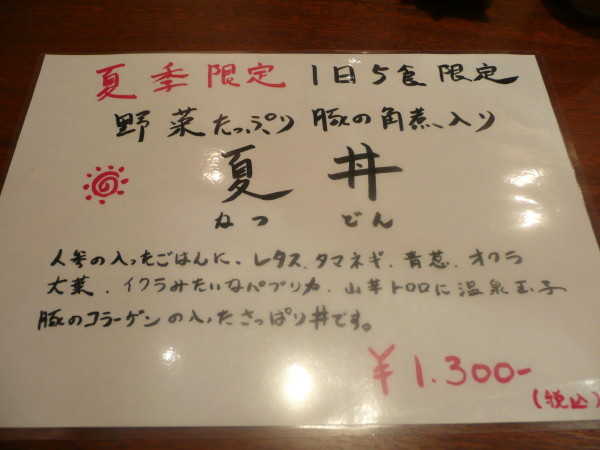 夏季限定 1日5食限定
野菜たっぷり 豚の角煮入り
夏 丼
ねつ どん
人参の入ったごはんに、レタス、タマネギ、青葱、オクラ
大葉、イクラみたいなパプリカ、山芋トロロに温泉玉子
豚のコラーゲンの入ったさっぱり丼です。
¥1.300-
(税込)